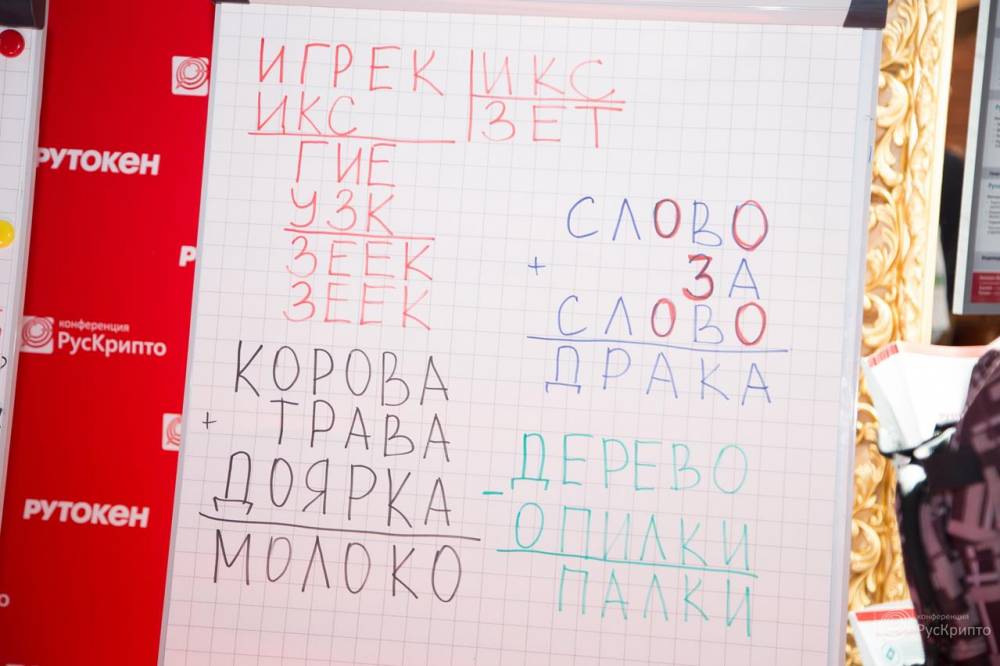 РУТОКЕН
Р
конференция
РусКрипто
РУТОКЕН
ИГРЕК ИКС
ИКС ЗЕТ
ГИЕ
УЗК
ЗЕЕК
ЗЕЕК
СЛОВО
+ ЗА
СЛОВО
ДРАКА
КОРОВА
+ ТРАВА
ДОЯРКА
МОЛОКО
ДЕРЕВО
- ОПИЛКИ
ПАЛКИ
конференция
РусКрипто